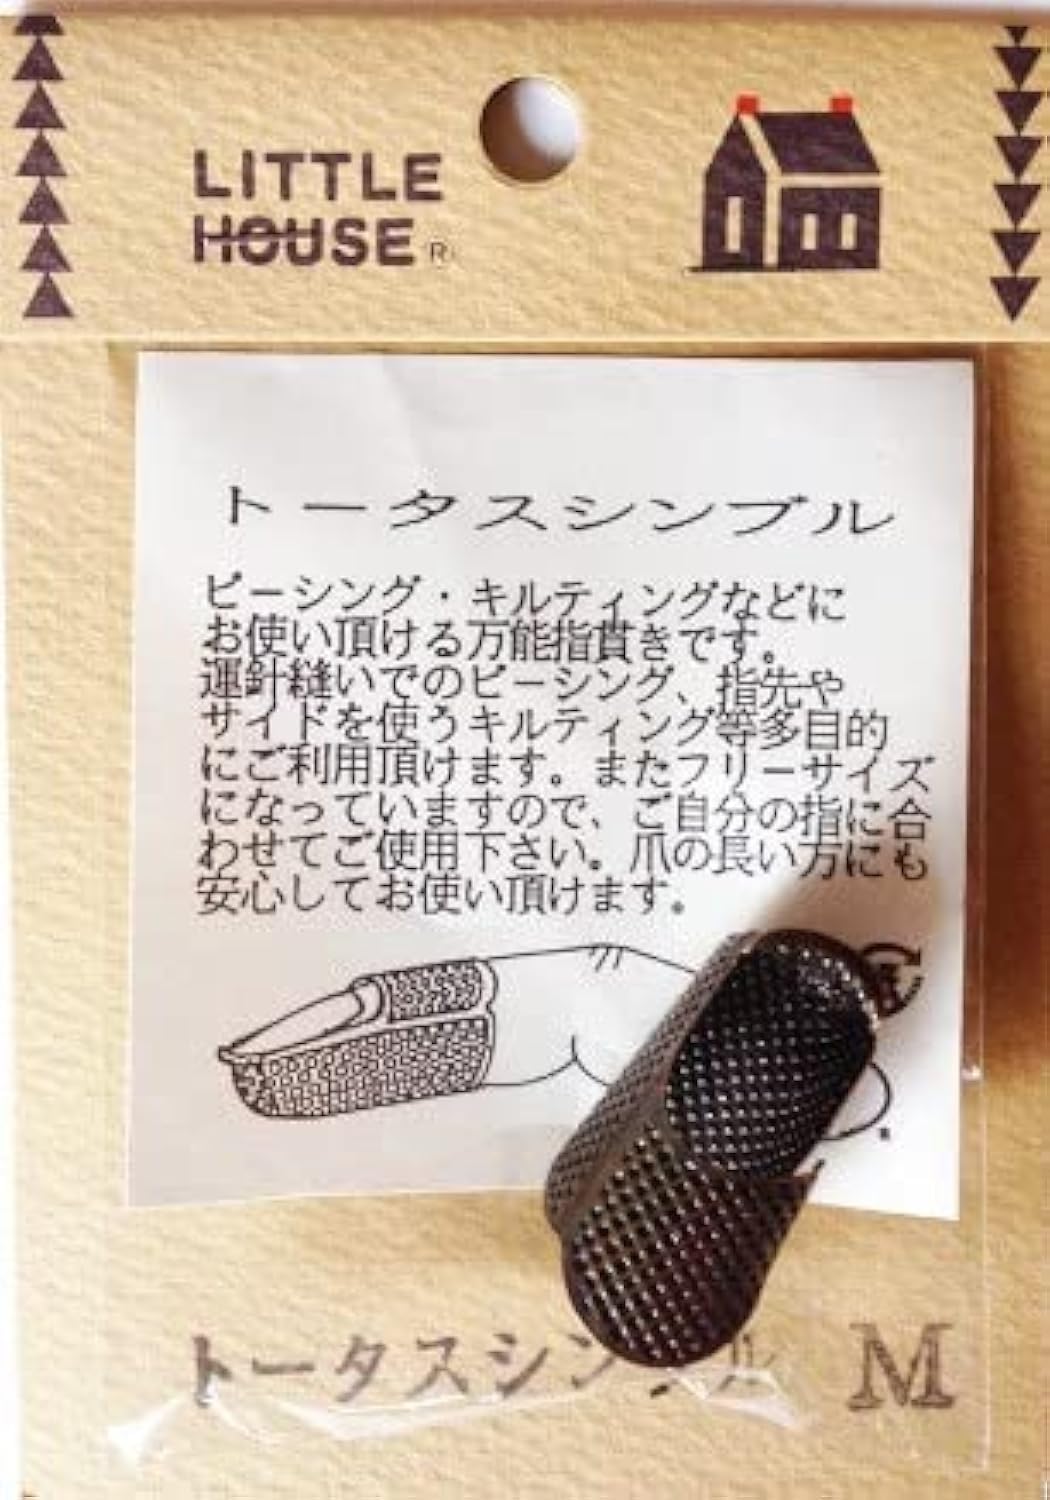 LITTLE
HOUSE R
トータスシンブル
ピーシング・キルティングなどに
お使い頂ける万能指貫きです。
運針縫いでのピーシング、指先や
サイドを使うキルティング等多目的
にご利用頂けます。またフリーサイズ
になっていますので、ご自分の指に合
わせてご使用下さい。爪の長い方にも
安心してお使い頂けます。
トータスシンブル M